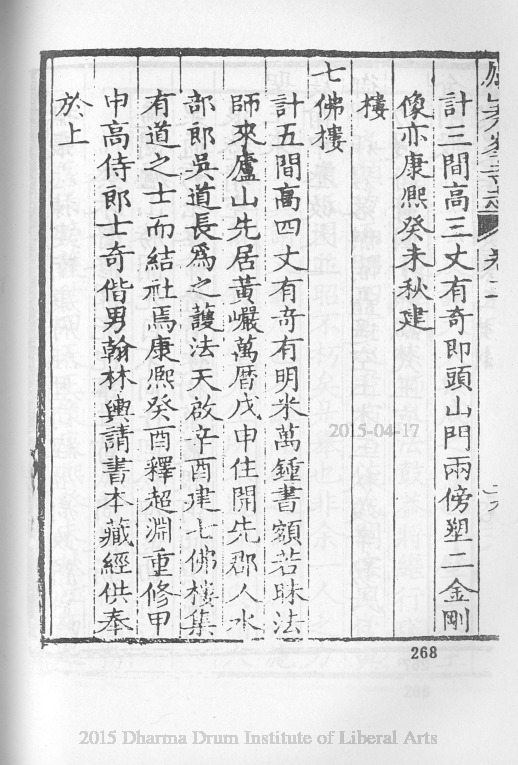 計三間高三丈有奇即頭山門兩傍塑二金剛
像亦康熙癸未秋建
樓
七佛樓
計五間高四丈有奇有明米萬鍾書額若昧法
師來廬山先居黃巖萬曆戊申住開先郡人水
部郎吳道長爲之護法天啟辛酉建七佛樓集
有道之士而結社焉康熙癸酉釋超淵重修甲
申高侍郎士奇偕男翰林輿請書本藏經供奉
於上
268
2015-04-17
2015 Dharma Drum Institute of Liberal Arts